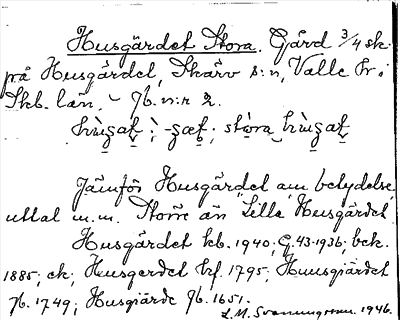 Husgärdet Stora. Gård 3/4 sk.
på Husgärdet, Skärv s:n, Valle hr;
Skb. län. – Jb. n:r 2.
Jämför Husgärdet am. betydelse
uttal m.m. Större än Lilla Husgärdet.
Husgärdet kb. 1940; G.43-1936; bck.
1885; ek; Husgerdet hf. 1795; Huusgiärdet
Jb. 1749; Husgiärde Jb. 1651.
L.M. Svanungsson. 1946.